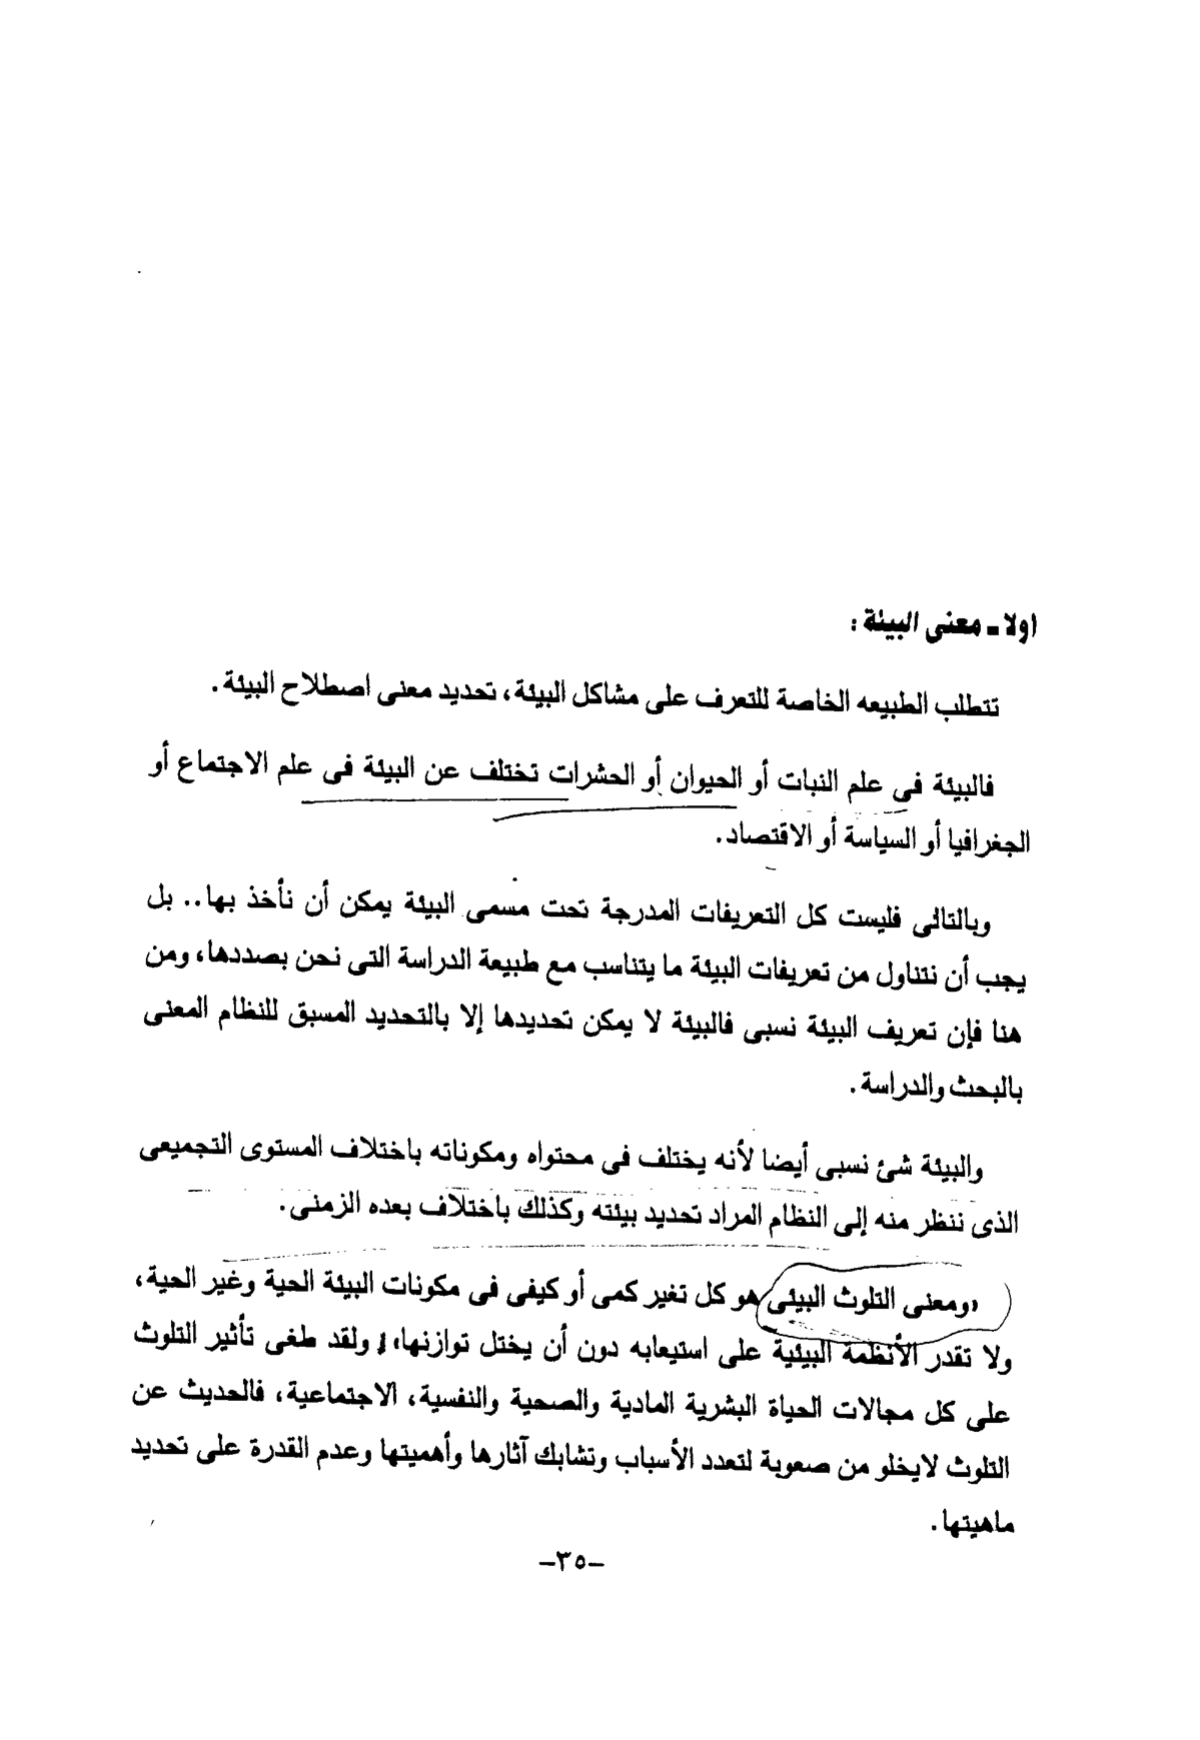 اولا - معنى البيئة :
تتطلب الطبيعه الخاصة للتعرف على مشاكل البيئة، تحديد معنى اصطلاح البيئة.
فالبيئة فى علم النبات أو الحيوان أو الحشرات تختلف عن البيئة فى علم الاجتماع أو
الجغرافيا أو السياسة أو الاقتصاد.
وبالتالى فليست كل التعريفات المدرجة تحت مسمى البيئة يمكن أن نأخذ بها.. بل
يجب أن نتناول من تعريفات البيئة ما يتناسب مع طبيعة الدراسة التى نحن بصددها، ومن
هنا فإن تعريف البيئة نسبى فالبيئة لا يمكن تحديدها إلا بالتحديد المسبق للنظام المعنى
بالبحث والدراسة.
والبيئة شئ نسبى أيضا لأنه يختلف فى محتواه ومكوناته باختلاف المستوى التجميعى
الذى ننظر منه إلى النظام المراد تحديد بيئته وكذلك باختلاف بعده الزمنى.
«ومعنى التلوث البيئى هو كل تغير كمى أو كيفى فى مكونات البيئة الحية وغير الحية،
ولا تقدر الأنظمة البيئية على استيعابه دون أن يختل توازنها، ولقد طغى تأثير التلوث
على كل مجالات الحياة البشرية المادية والصحية والنفسية، الاجتماعية، فالحديث عن
التلوث لايخلو من صعوبة لتعدد الأسباب وتشابك آثارها وأهميتها وعدم القدرة على تحديد
ماهيتها.
-٣٥-